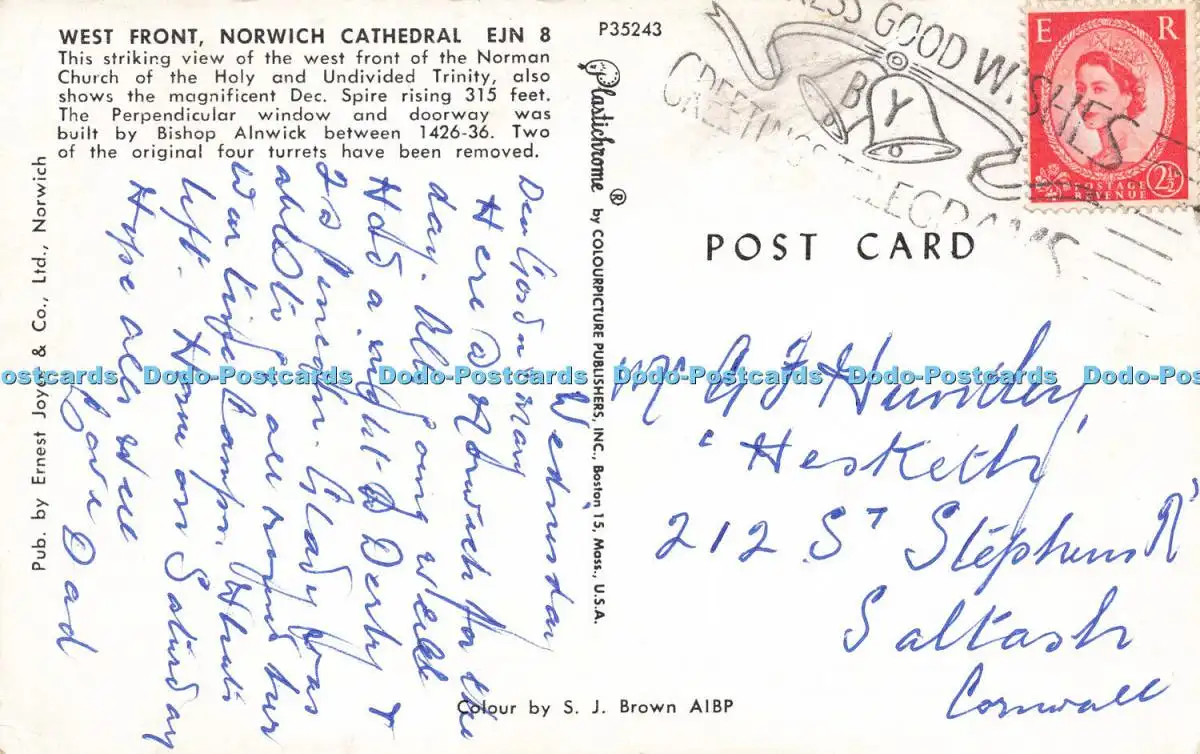 WEST FRONT, NORWICH CATHEDRAL EJN 8
This striking view of the west front of the Norman
Church of the Holy and Undivided Trinity, also
shows the magnificent Dec. Spire rising 315 feet.
The Perpendicular window and doorway was
built by Bishop Alnwick between 1426-36. Two
of the original four turrets have been removed.
P35243
Pub. by Ernest Joyce & Co., Ltd., Norwich
Plastichrome ® by COLOURPICTURE PUBLISHERS, INC., Boston 15, Mass., U.S.A.
GOOD WISHES
BY
GREETINGS TELEGRAMS
E R
POSTAGE
REVENUE
2½
POST CARD
Wednesday
Dear Gordon & Mary
Here @ Norwich for the
day. All going well
Had a night @ Derby &
Gladys was
able to
all round tur
left. Home on Saturday
Hope all well
Love Dad
Mr A J
'Hesketh'
212 St Stephens Rd
Saltash
Cornwall
Colour by S. J. Brown AIBP
Dodo-Postcards Dodo-Postcards Dodo-Postcards Dodo-Postcards Dodo-Postcards